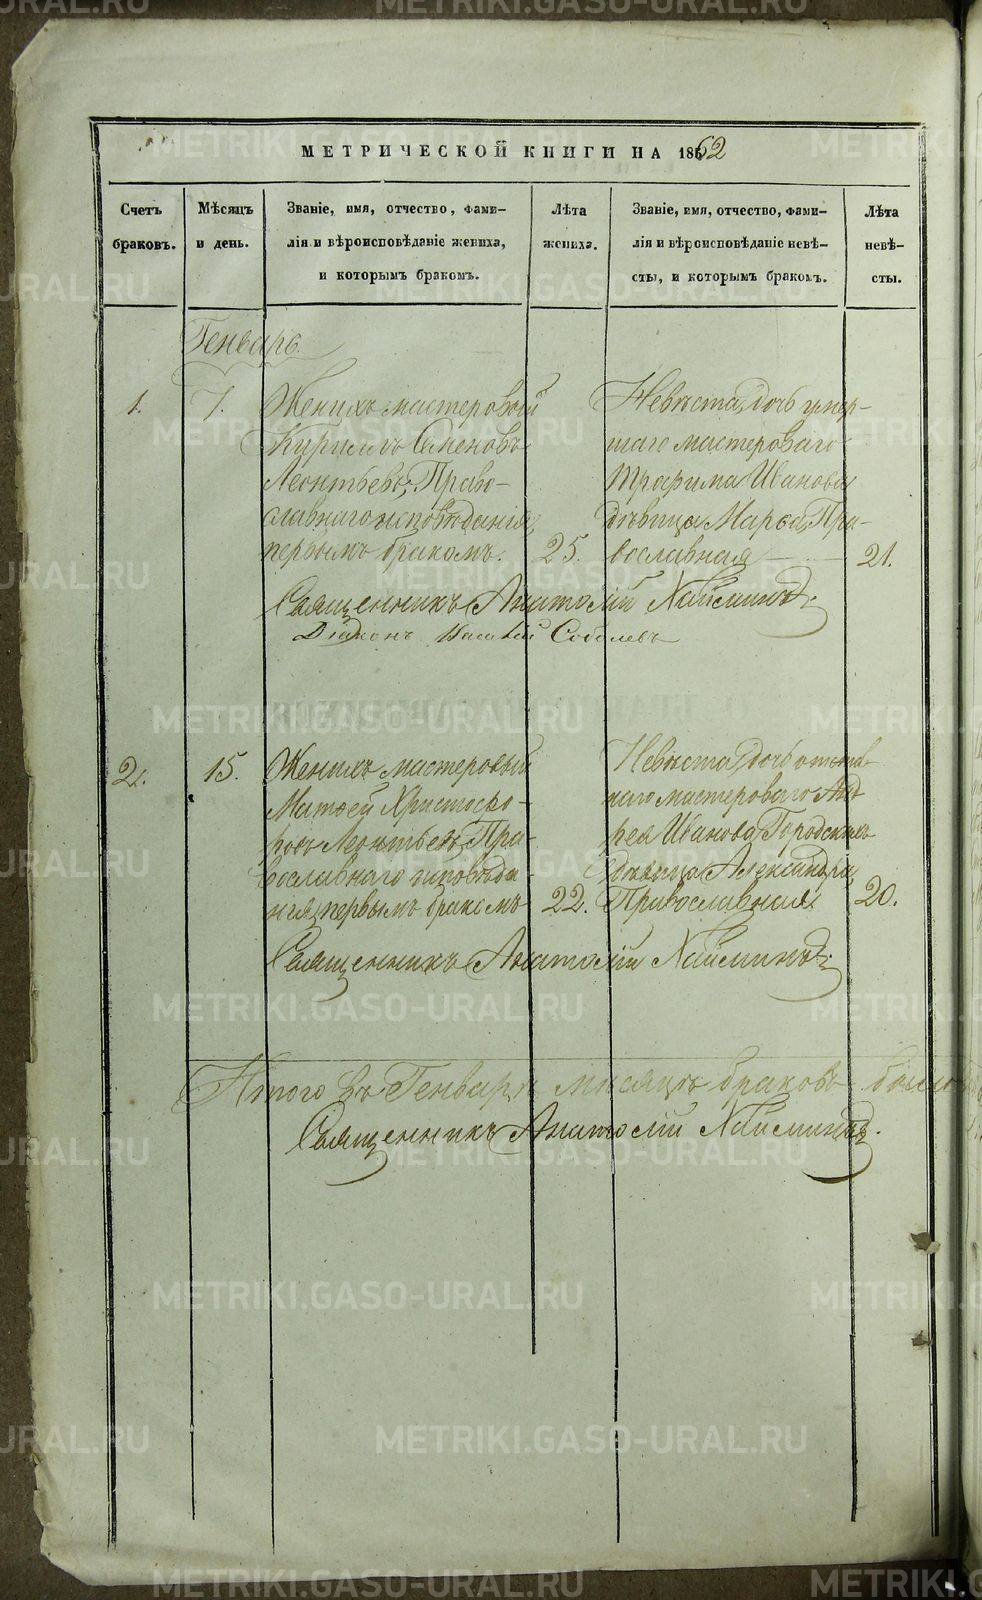 МЕТРИЧЕСКОЙ КНИГИ НА 1862
Счетъ браковъ.
Мѣсяцъ и день.
Званіе, имя, отчество, фами-
лія и вѣроисповѣданіе жениха,
и которымъ бракомъ.
Лѣта жениха.
Званіе, имя, отчество, фами-
лія и вѣроисповѣданіе невѣ-
сты, и которымъ бракомъ.
Лѣта невѣ-
сты.
Генварь.
1.
7.
Женихъ мастеровой
Кириллъ Семеновъ
Леонтьевъ, Право-
славнаго исповѣданія,
первымъ бракомъ.
25.
Невѣста, дочь умер-
шаго мастероваго
Трафима Иванова
дѣвица Марѳа, Пра-
вославная
21.
Священникъ Анатолій
Діаконъ Соболевъ
2.
15.
Женихъ мастеровый
Матѳей Христофо-
ровъ Леонтьевъ, Пра-
вославнаго исповѣда-
нія, первымъ бракомъ
22.
Невѣста, дочь отстав-
наго мастероваго Анд-
рея Иванова Городскихъ
дѣвица Александра,
Православная
20.
Священникъ Анатолій
Итого въ Генварѣ мѣсяцѣ браковъ было
Священникъ Анатолій
METRIKI.GASO-URAL.RU